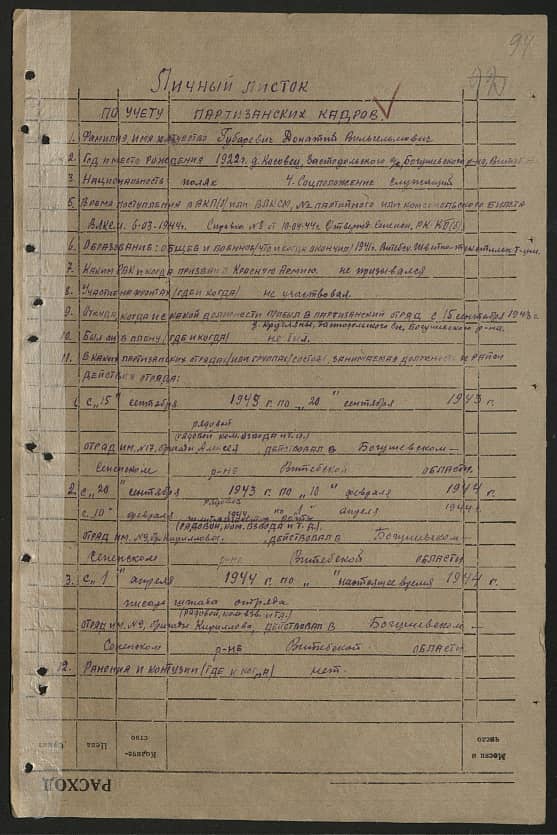 94
Личный листок
по учету партизанских кадров
1. Фамилия, имя отчество Губаревич Донатий Вильгельмович
2. Год и место рождения 1922 г. д. Косовец, Застодольского Богушевского р-на,
3. Национальность поляк 4. Соцположение служащий
5. Время поступления в ВКП/б/ или ВЛКСМ, № партийного или комсомольского билета
ВЛКСМ. 6-03-1944г. Справка № 8 от 10.04.44г. РК КП(б)
6. Образование: общее и военное/что и когда окончил/ 1941г.
7. Каким РВК и когда призван в Красную Армию. не призывался
8. Участие на фронтах/где и когда/ не участвовал.
9. Откуда, когда и с какой должности прибыл в партизанский отряд с 15 сентября 1943 г.
Богушевского р-на.
10. Был ли в плену/где и когда/ не был.
11. В каких партизанских отрядах/или группах/состоял, занимаемая должность и район
действия отряда:
1. с „15" сентября 1943 г. по „20" сентября 1943 г.
рядовой
(рядовой, ком. взвода и т.д.)
отряд им. №17, бригады Алексея действовал в Богушевском —
Сенненском р-не Витебской области.
2. с „20" сентября 1943 г. по „10" февраля 1944 г.
рядовой
с „10" февраля 1944 по „1" апреля 1944 г.
(рядовой, ком. взвода и т.д.)
отряд им. №9, бр. Кириллова. действовал в Богушевском —
Сенненском р-не Витебской области
3. с „1" апреля 1944 г. по „ " настоящее время 1944 г.
писарь штаба отряда
(рядовой, ком. взв. и т.д.)
отряд им. №9, бригады Кириллова, действовал в Богушевском —
Сенненском р-не Витебской области
12. Ранения и контузии/где и когда/ нет.
Месяц и число
Количе-ство
Цена
Сумма
РАСХОД